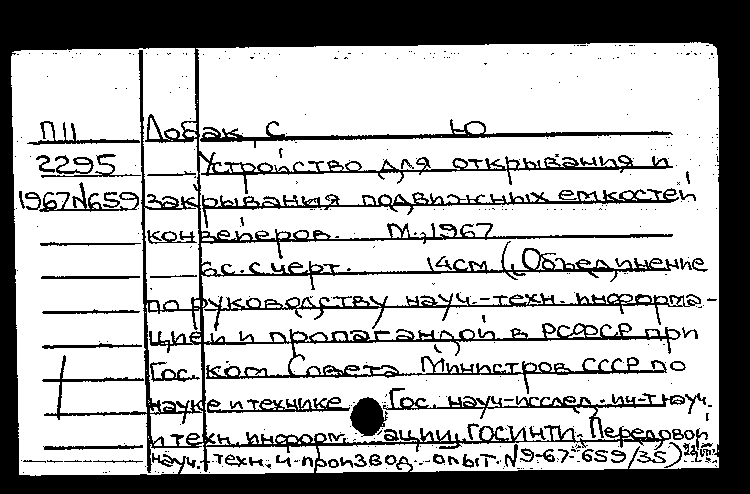 П11 Лобак, С Ю
2295 Устройство для открывания и
1967N659 закрывания подвижных емкостей
конвейеров. М., 1967
6с. с черт. 14см (Объединение
по руководству науч.-техн. информа-
цией и пропагандой в РСФСР при
Гос. ком. Совета Министров СССР по
науке и технике Гос. науч-исслед. ин-т науч.
и техн. информ ации, ГОСИНТИ. Передовой
науч.-техн. и производ. опыт. N9-67-659/35)